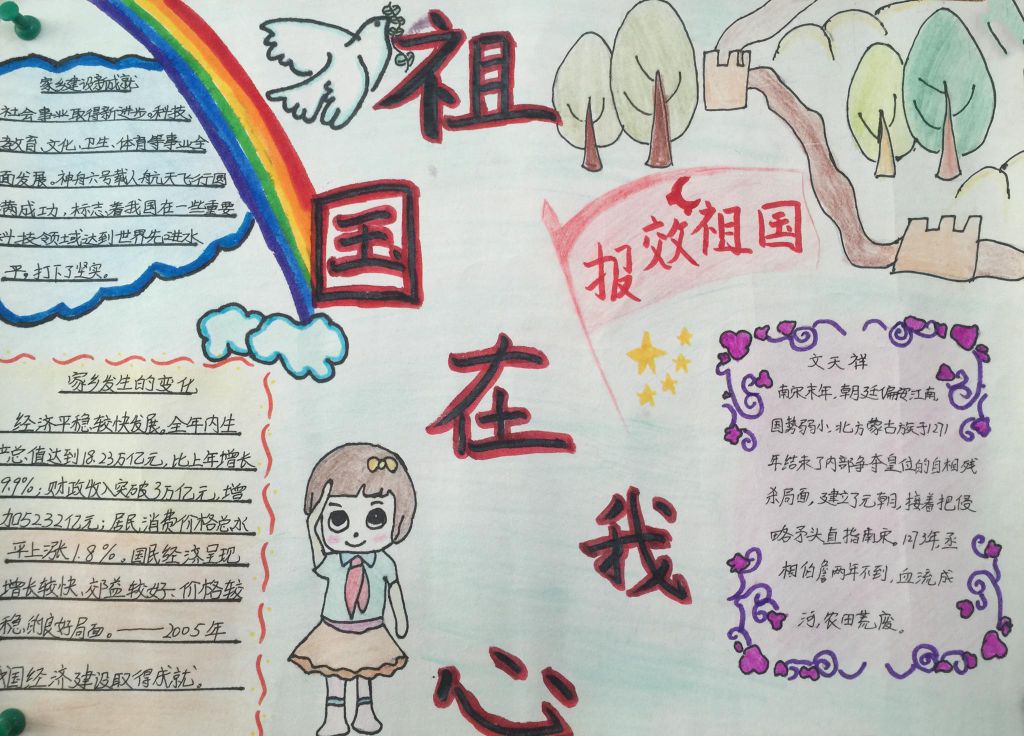 祖
国
在
我
心
报效祖国
家乡建设新成就
社会事业取得新进步。科技、
教育、文化、卫生、体育等事业全
面发展。神舟六号载人航天飞行圆
满成功,标志着我国在一些重要
科技领域达到世界先进水
平。打下了坚实。
家乡发生的变化
经济平稳较快发展。全年内生
产总值达到18.23万亿元,比上年增长
9.9%;财政收入突破3万亿元,增
加5232亿元;居民消费价格总水
平上涨1.8%。国民经济呈现
增长较快、效益较好、价格较
稳的良好局面。——2005年
我国经济建设取得成就。
文天祥
南宋末年,朝廷偏安江南,
国势弱小,北方蒙古族于1271
年结束了内部争夺皇位的自相残
杀局面,建立了元朝,接着把侵
略矛头直指南宋。1273年丞
相伯颜两年不到,血流成
河,农田荒废。